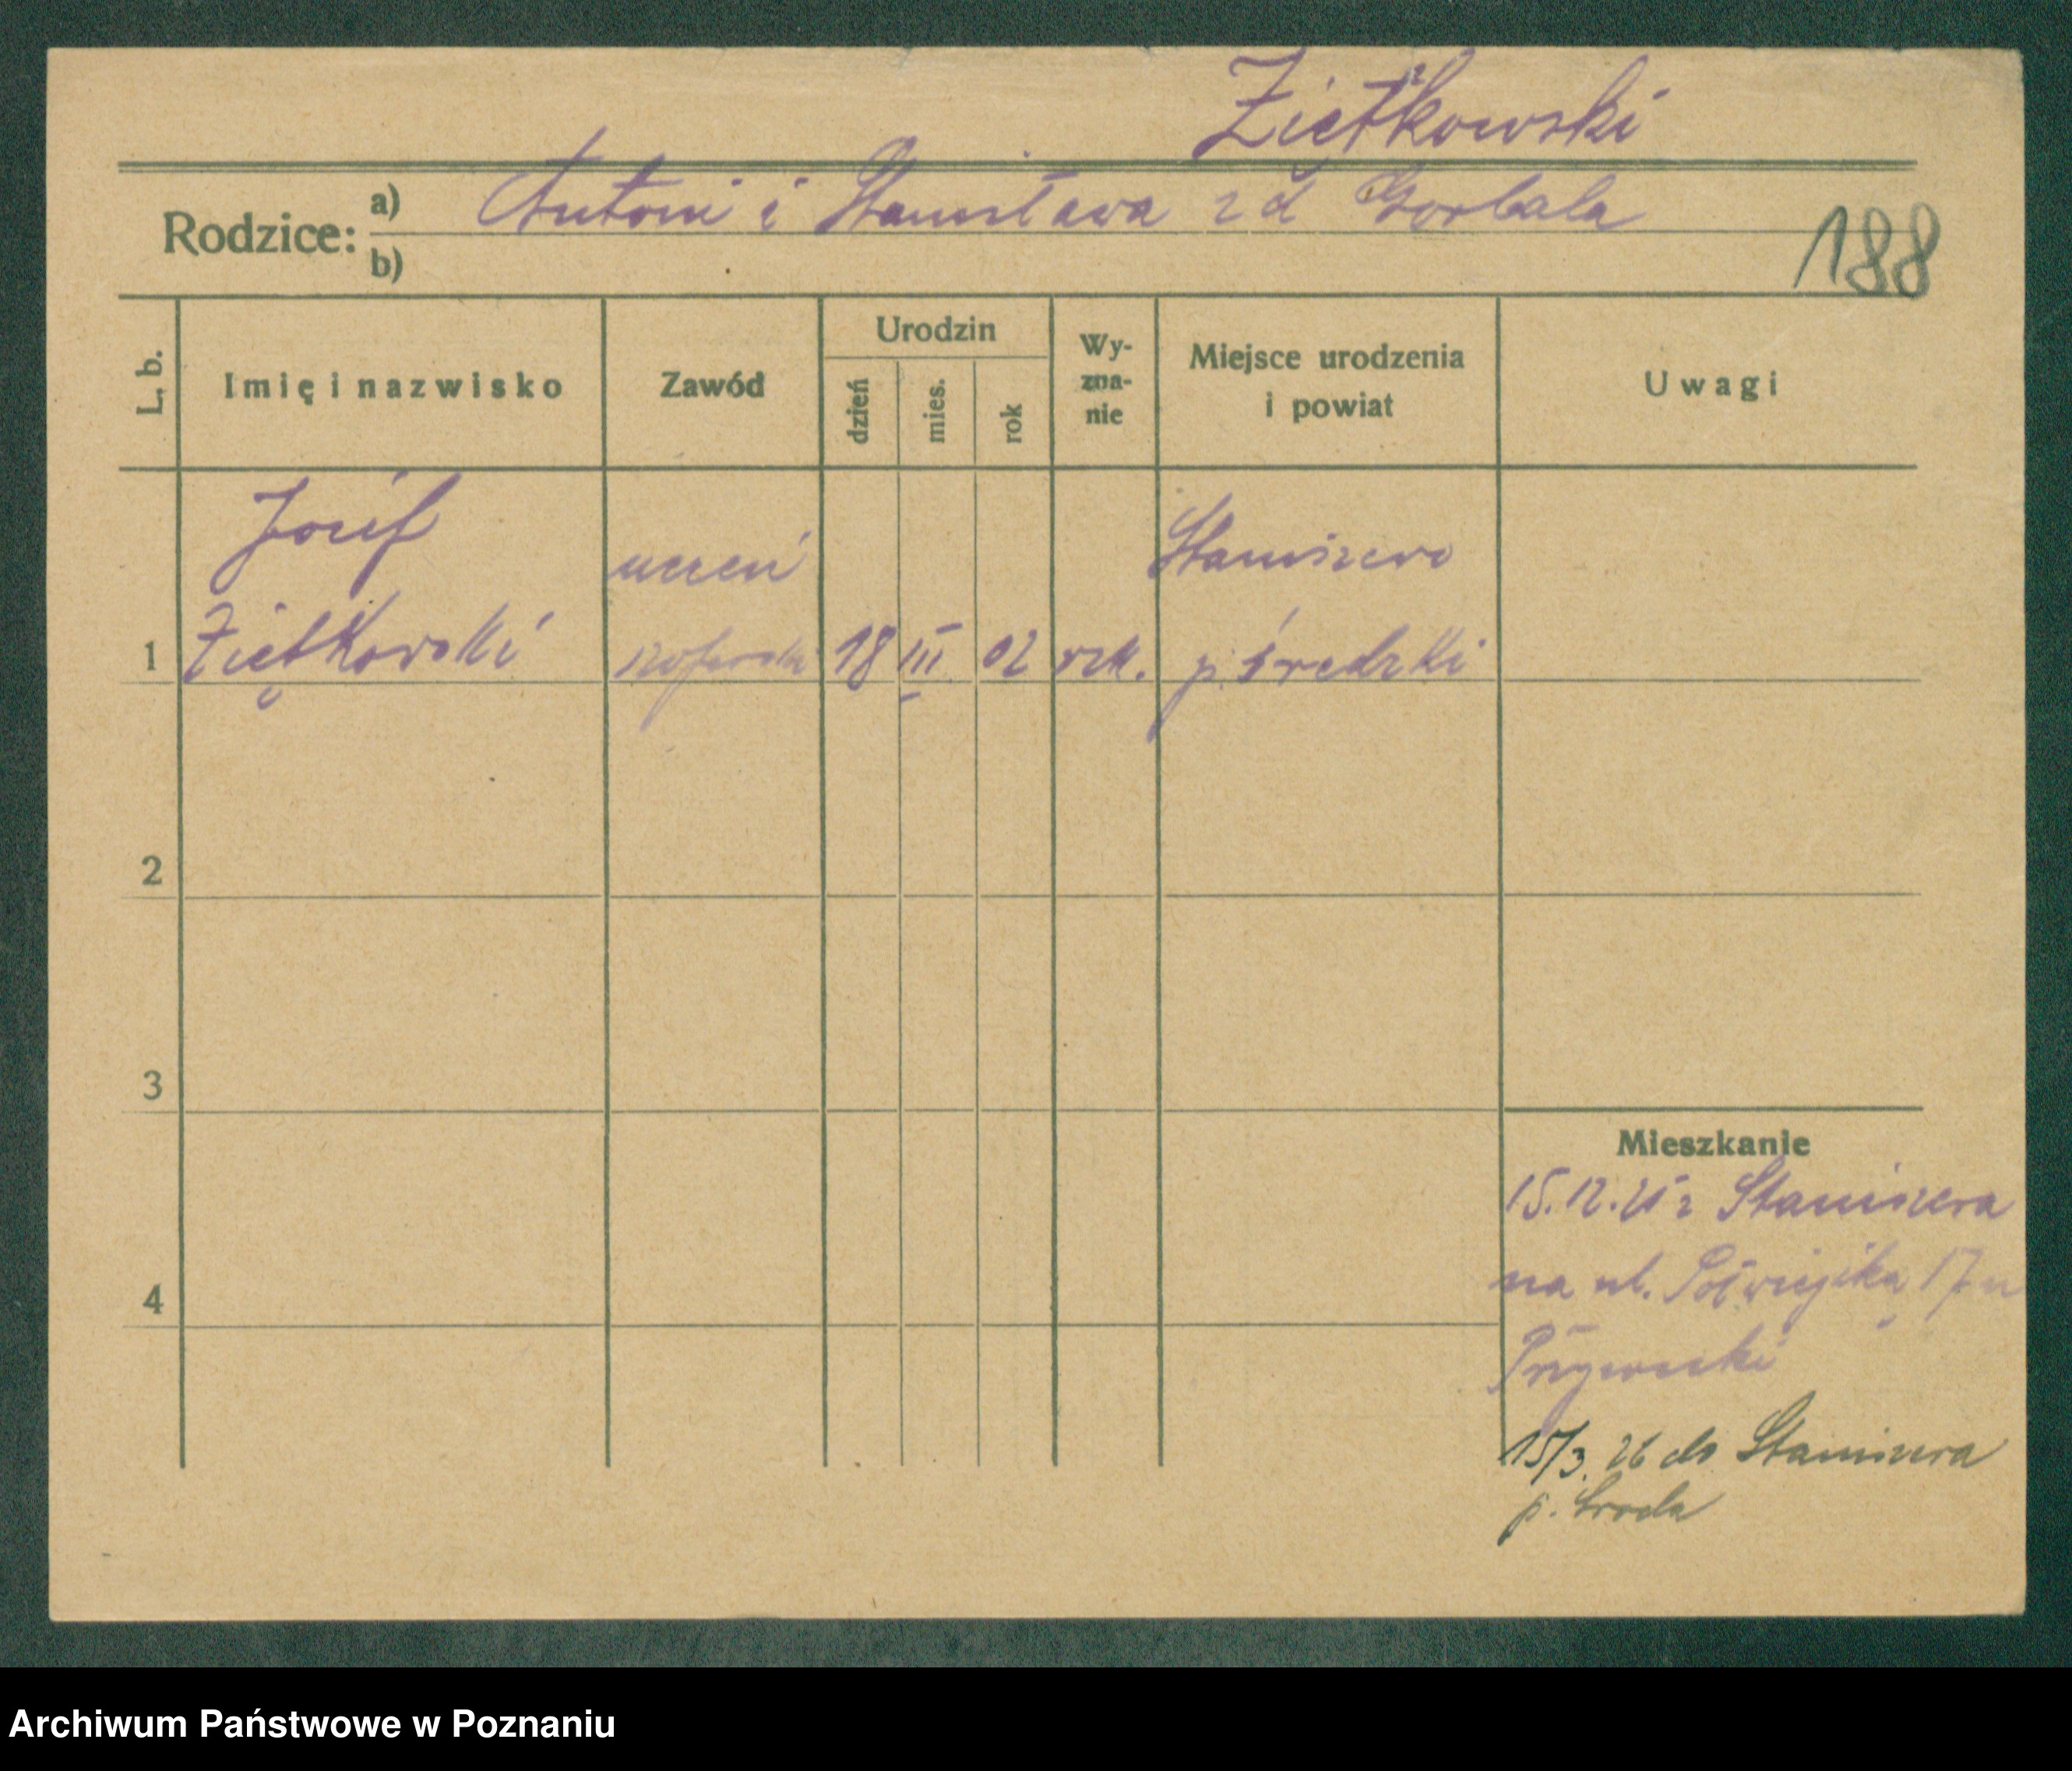 Ziętkowski
Rodzice: a) Antoni i Stanisława z d Gorbala
b)
188
L. b. Imię i nazwisko Zawód Urodzin dzień mies. rok Wy-zna-nie Miejsce urodzenia i powiat Uwagi
Józef
uczeń Staniszewo
1 Ziętkowski szoferski 18 III 02 rzk. p. średzki
2
3
Mieszkanie
15.12.25 z Staniszewa
na ul. 17 u
4
15/3. 26 do Staniszewa
p. Sroda
Archiwum Państwowe w Poznaniu